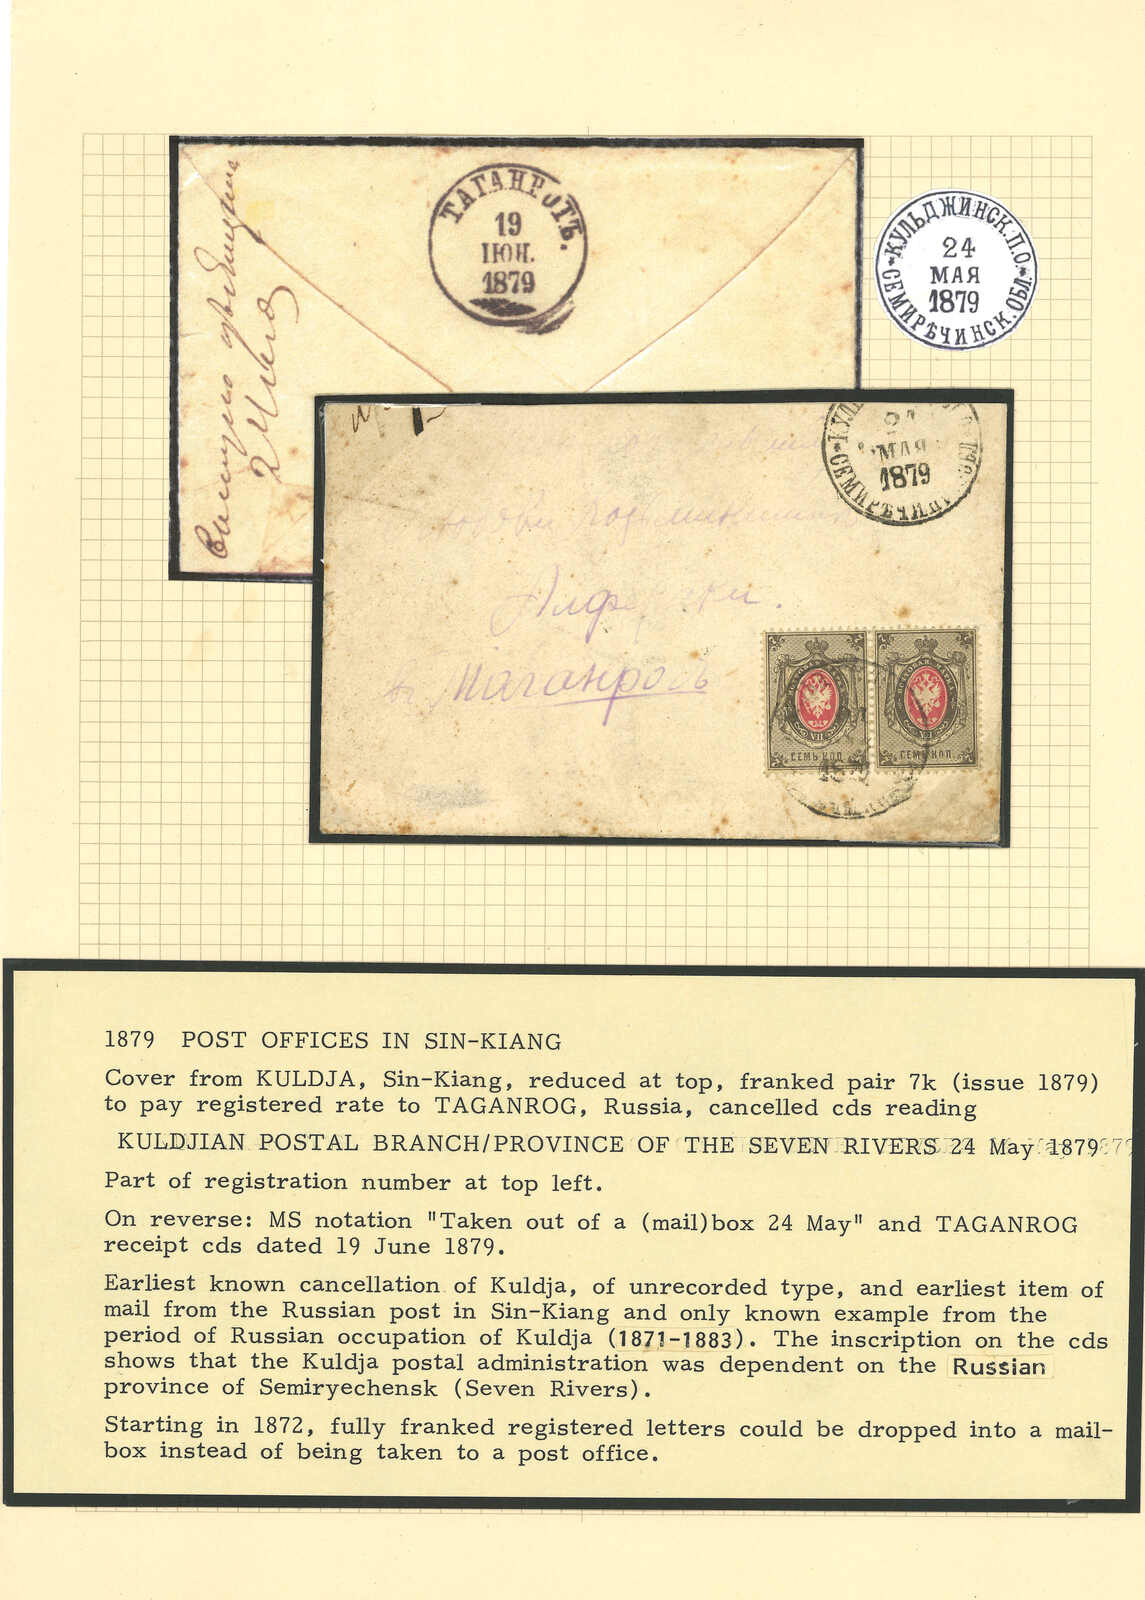 ТАГАНРОГЪ.
19
ІЮН.
1879
КУЛЬДЖИНСК.П.О.
24
МАЯ
1879
СЕМИРѢЧИНСК.ОБЛ.
КУЛ
МАЯ
1879
СЕМИРѢЧИНС
Таганрогъ
СЕМЬ КОП. СЕМЬ КОП.
1879 POST OFFICES IN SIN-KIANG
Cover from KULDJA, Sin-Kiang, reduced at top, franked pair 7k (issue 1879)
to pay registered rate to TAGANROG, Russia, cancelled cds reading
KULDJIAN POSTAL BRANCH/PROVINCE OF THE SEVEN RIVERS 24 May 1879
Part of registration number at top left.
On reverse: MS notation "Taken out of a (mail)box 24 May" and TAGANROG
receipt cds dated 19 June 1879.
Earliest known cancellation of Kuldja, of unrecorded type, and earliest item of
mail from the Russian post in Sin-Kiang and only known example from the
period of Russian occupation of Kuldja (1871-1883). The inscription on the cds
shows that the Kuldja postal administration was dependent on the Russian
province of Semiryechensk (Seven Rivers).
Starting in 1872, fully franked registered letters could be dropped into a mail-
box instead of being taken to a post office.